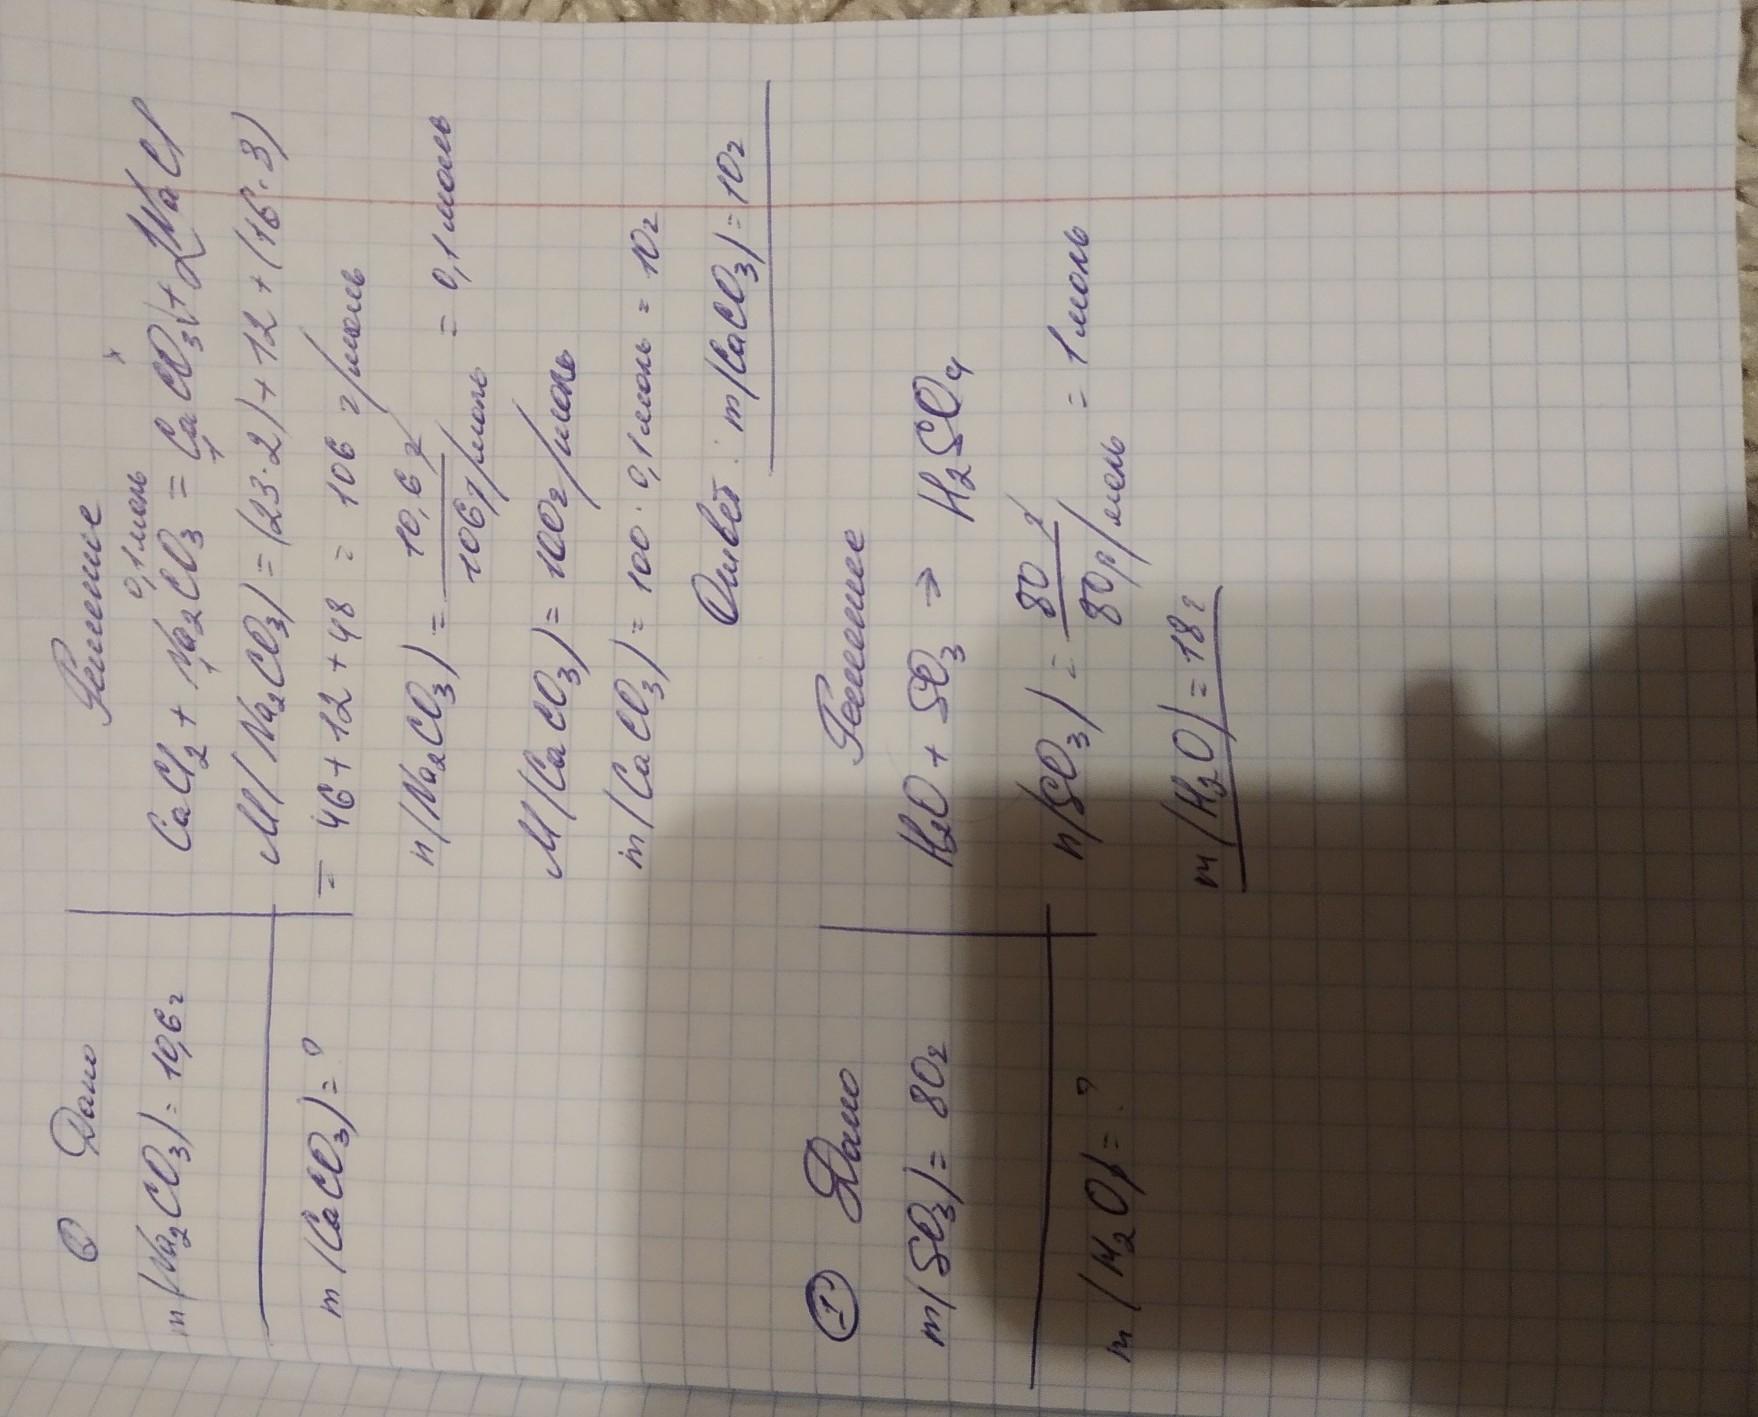 Дано
m(Na₂CO₃) = 10,6г
m(CaCO₃) = ?
Решение
0,1моль x
CaCl₂ + Na₂CO₃ = CaCO₃↓ + 2NaCl
1 1
M(Na₂CO₃) = (23·2) + 12 + (16·3)
= 46 + 12 + 48 = 106 г/моль
n(Na₂CO₃) = 10,6 г / 106 г/моль = 0,1 моль
M(CaCO₃) = 100г/моль
m(CaCO₃) = 100 · 0,1 моль = 10г
Ответ: m(CaCO₃) = 10г
① Дано
m(SO₃) = 80г
m(H₂O) = ?
Решение
H₂O + SO₃ → H₂SO₄
n(SO₃) = 80 г / 80 г/моль = 1 моль
m(H₂O) = 18г